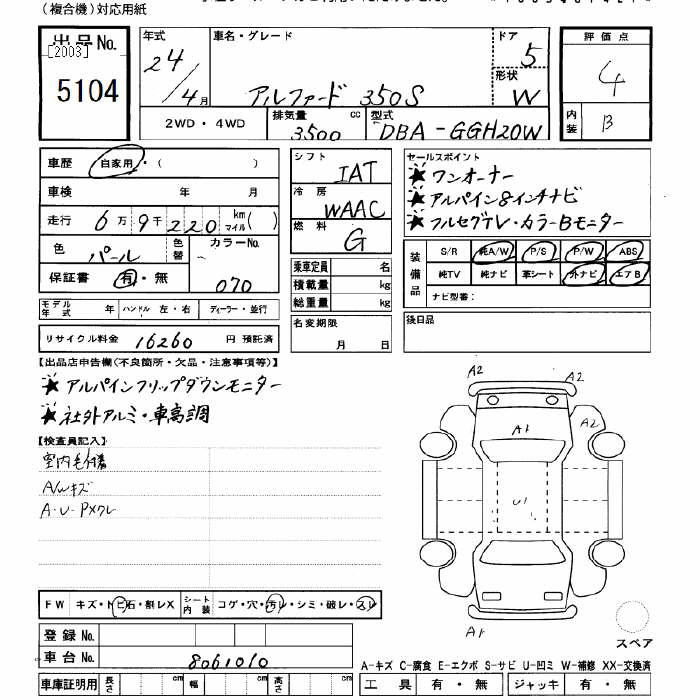 (複合機)対応用紙
出品No.
[2003]
5104
年式
24/4月
車名・グレード
アルファード 350S
ドア
5
形状
W
評価点
4
内装
B
2WD・4WD
排気量
3500
cc
型式
DBA-GGH20W
車歴 自家用・( )
車検 年 月
走行 6万9千220 km マイル( )
色 パール
色替
カラーNo.
070
保証書 有・無
モデル年式 年 ハンドル 左・右 ディーラー・並行
リサイクル料金 16260 円 預託済
シフト
IAT
冷房
WAAC
燃料
G
乗車定員 名
積載量 kg
総重量 kg
名変期限
月 日
セールスポイント
★ワンオーナー
★アルパイン8インチナビ
★フルセグTV・カラーBモニター
装備品
S/R 純A/W P/S P/W ABS
純TV 純ナビ 革シート 外ナビ エアB
ナビ型番:
後日品
【出品店申告欄(不良箇所・欠品・注意事項等)】
★アルパインフリップダウンモニター
★社外アルミ・車高調
【検査員記入】
室内毛付着
A/Wキズ
A・U・Pメクレ
A2
A2
A1
A2
U1
A1
スペア
FW キズ・トビ石・割レX
シート内装 コゲ・穴・汚レ・シミ・破レ・スレ
登録No.
車台No. 8061010
車庫証明用 長さ cm 幅 cm 高さ cm
A-キズ C-腐食 E-エクボ S-サビ U-凹ミ W-補修 XX-交換済
工具 有・無 ジャッキ 有・無